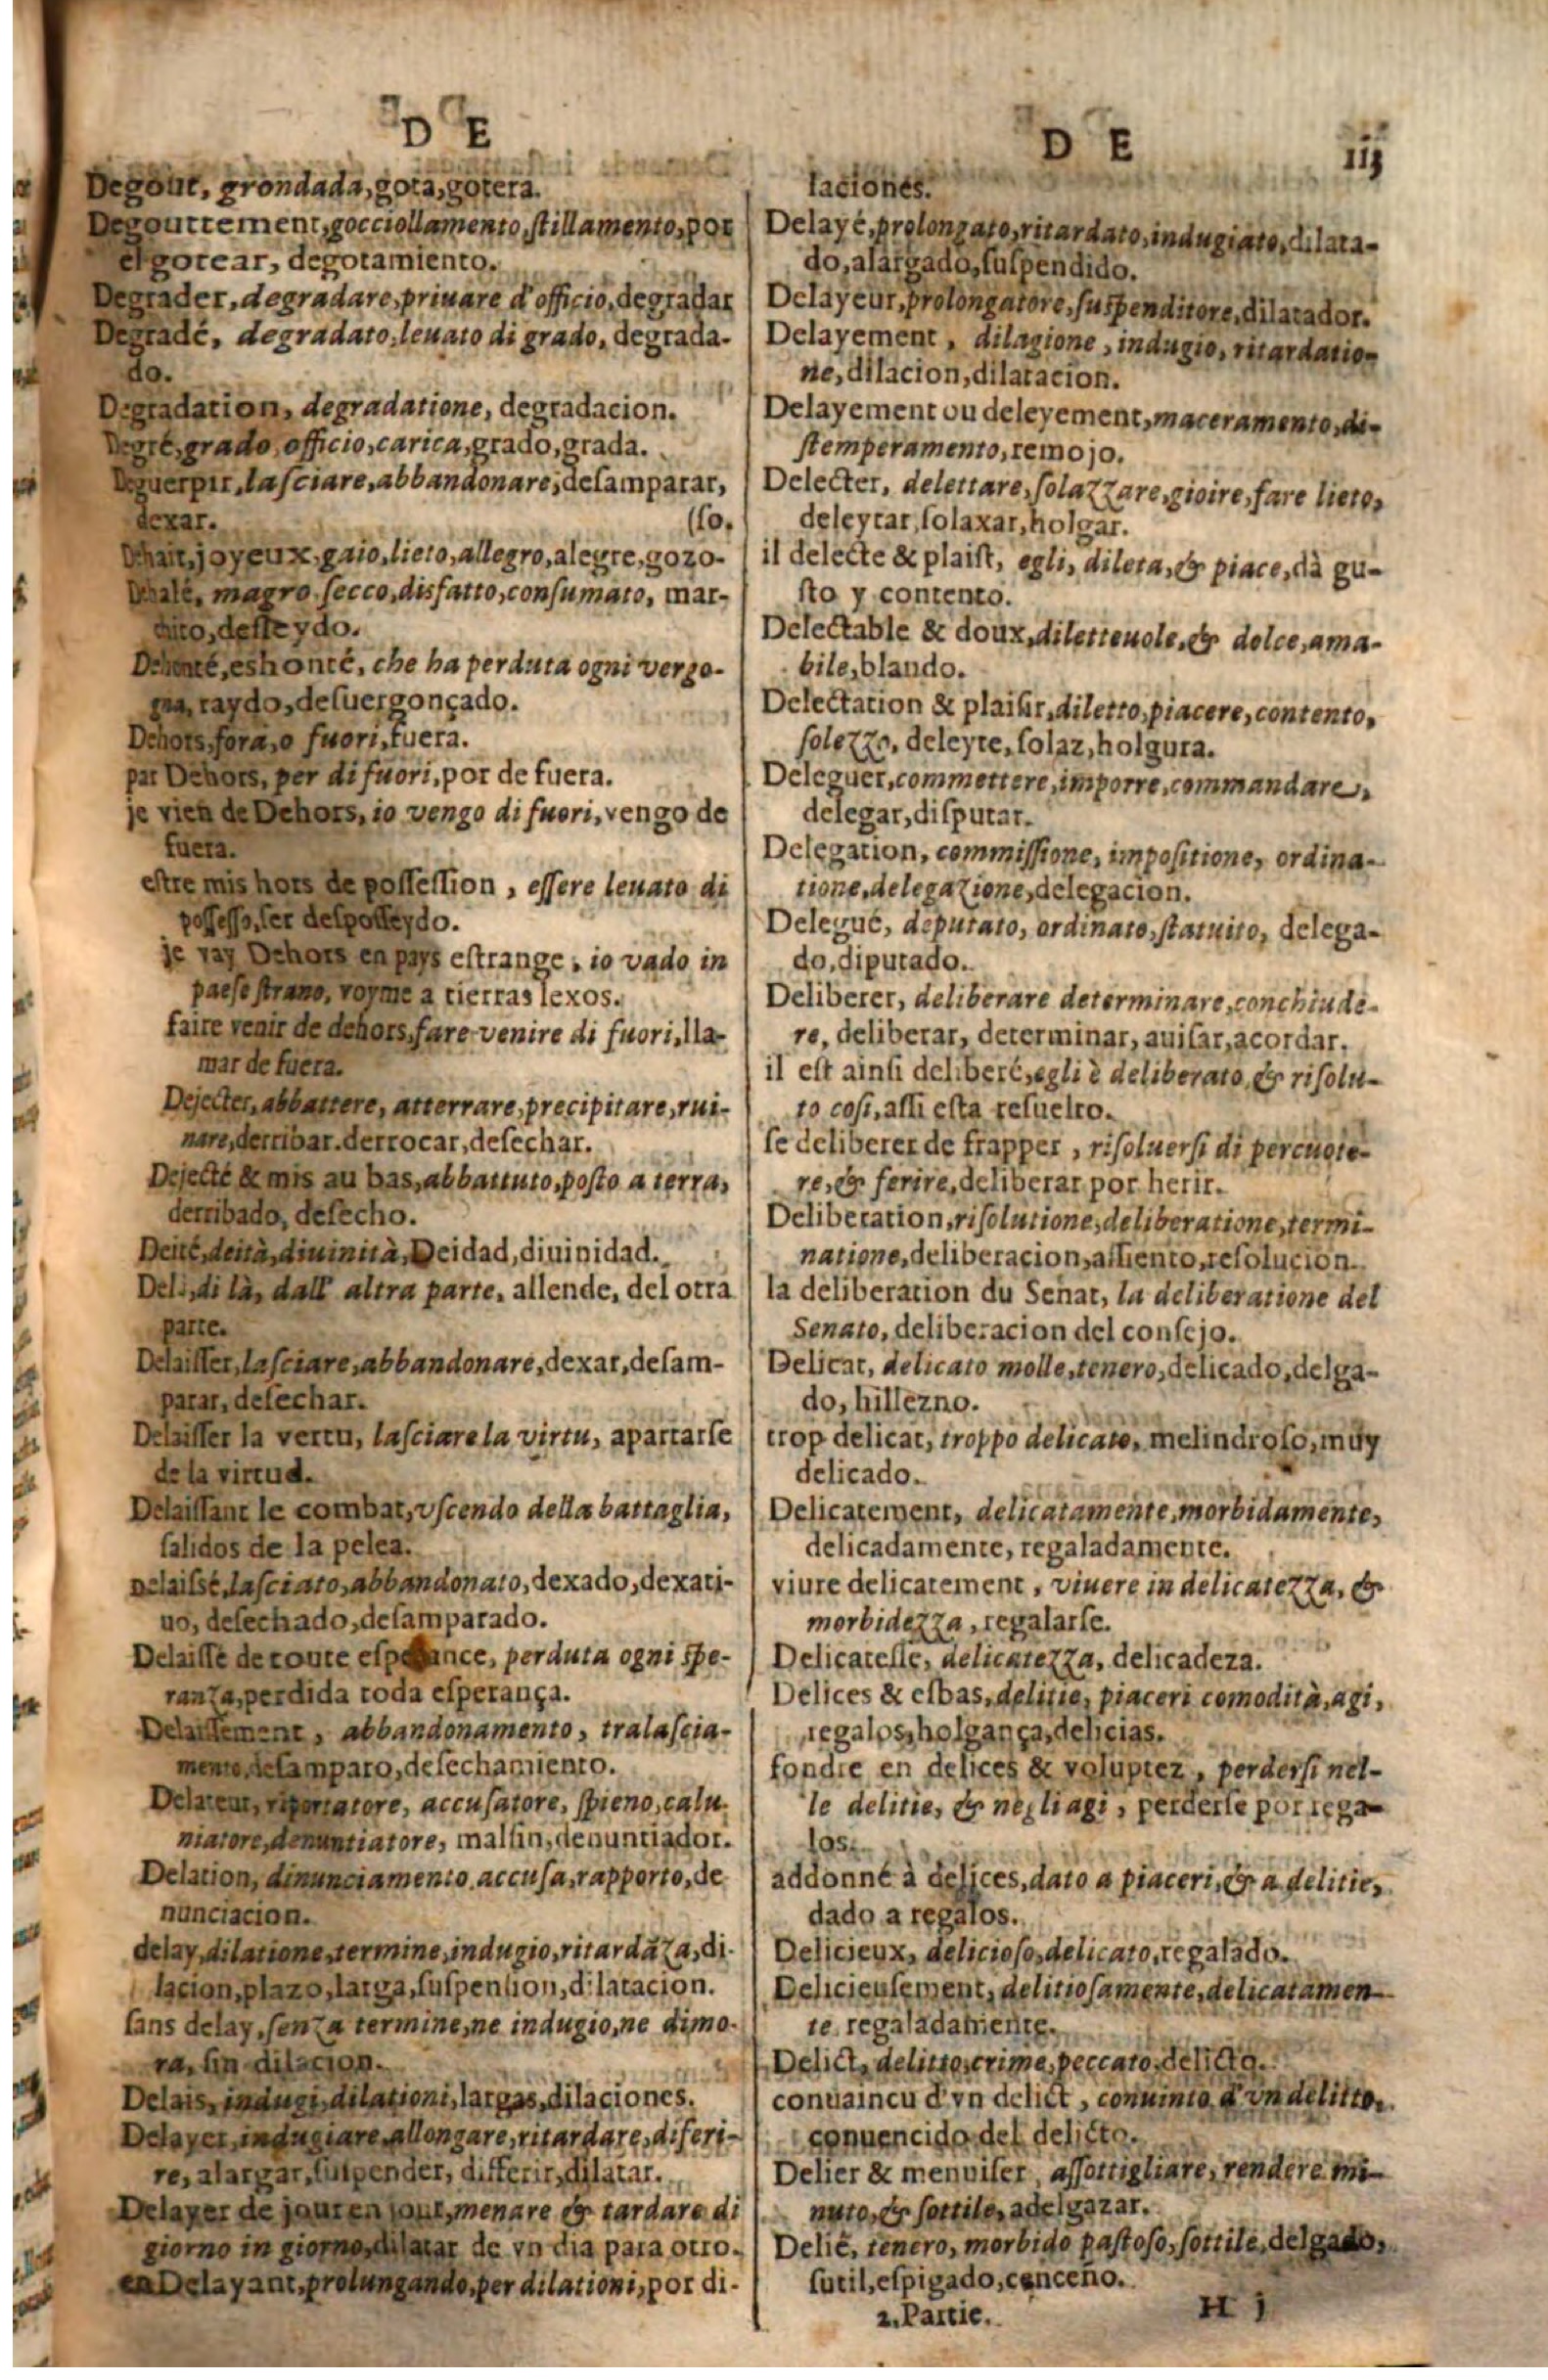 D E
Degout, grondada, gota, gotera.
Degouttement, gocciollamento, ſtillamento, por
el gotear, degotamiento.
Degrader, degradare, priuare d'officio, degradar
Degradé, degradato, leuato di grado, degrada-
do.
Degradation, degradatione, degradacion.
Degré, grado, officio, carica, grado, grada.
Deguerpir, laſciare, abbandonare, deſamparar,
dexar. (ſo.
Dehait, joyeux, gaio, lieto, allegro, alegre, gozo-
Dehalé, magro ſecco, disfatto, conſumato, mar-
chito, deſleydo.
Dehonté, eshonté, che ha perduta ogni vergo-
gna, raydo, deſuergonçado.
Dehors, fora, o fuori, fuera.
par Dehors, per di fuori, por de fuera.
je vien de Dehors, io vengo di fuori, vengo de
fuera.
eſtre mis hors de poſſeſſion, eſſere leuato di
poſſeſſo, ſer deſpoſſeydo.
je vay Dehors en pays eſtrange, io vado in
paeſe ſtrano, voyme a tierras lexos.
faire venir de dehors, fare venire di fuori, lla-
mar de fuera.
Dejecter, abbattere, atterrare, precipitare, rui-
nare, derribar. derrocar, deſechar.
Dejecté & mis au bas, abbattuto, poſto a terra,
derribado, deſecho.
Deité, deità, diuinità, Deidad, diuinidad.
Delà, di là, dall' altra parte, allende, del otra
parte.
Delaiſſer, laſciare, abbandonare, dexar, deſam-
parar, deſechar.
Delaiſſer la vertu, laſciare la virtu, apartarſe
de la virtud.
Delaiſſant le combat, vſcendo della battaglia,
ſalidos de la pelea.
Delaiſsé, laſciato, abbandonato, dexado, dexati-
uo, deſechado, deſamparado.
Delaiſſe de toute eſperance, perduta ogni ſpe-
ranza, perdida toda eſperança.
Delaiſſement, abbandonamento, tralaſcia-
mento, deſamparo, deſechamiento.
Delateur, riportatore, accuſatore, ſpieno, calu-
niatore, denuntiatore, malſin, denuntiador.
Delation, dinunciamento, accuſa, rapporto, de
nunciacion.
delay, dilatione, termine, indugio, ritardãza, di-
lacion, plazo, larga, ſuſpenſion, dilatacion.
ſans delay, ſenza termine, ne indugio, ne dimo-
ra, ſin dilacion.
Delais, indugi, dilationi, largas, dilaciones.
Delayer, indugiare, allongare, ritardare, diferi-
re, alargar, ſuſpender, differir, dilatar.
Delayer de jour en jour, menare & tardare di
giorno in giorno, dilatar de vn dia para otro.
en Delayant, prolungando, per dilationi, por di-
D E iij
laciones.
Delayé, prolongato, ritardato, indugiato, dilata-
do, alargado, ſuſpendido.
Delayeur, prolongatore, ſuſpenditore, dilatador.
Delayement, dilagione, indugio, ritardatio-
ne, dilacion, dilatacion.
Delayement ou deleyement, maceramento, di-
ſtemperamento, remojo.
Delecter, delettare, ſolazzare, gioire, fare lieto,
deleytar, ſolaxar, holgar.
il delecte & plaiſt, egli, dileta, & piace, dà gu-
ſto y contento.
Delectable & doux, diletteuole, & dolce, ama-
bile, blando.
Delectation & plaiſir, diletto, piacere, contento,
ſolezzo, deleyte, ſolaz, holgura.
Deleguer, commettere, imporre, commandare,
delegar, diſputar.
Delegation, commiſſione, impoſitione, ordina-
tione, delegazione, delegacion.
Delegué, deputato, ordinato, ſtatuito, delega-
do, diputado.
Deliberer, deliberare determinare, conchiude-
re, deliberar, determinar, auiſar, acordar.
il eſt ainſi deliberé, egli è deliberato, & riſolu-
to coſi, aſſi eſta reſuelto.
ſe deliberer de frapper, riſoluerſi di percuote-
re, & ferire, deliberar por herir.
Deliberation, riſolutione, deliberatione, termi-
natione, deliberacion, aſſiento, reſolucion.
la deliberation du Senat, la deliberatione del
Senato, deliberacion del conſejo.
Delicat, delicato molle, tenero, delicado, delga-
do, hillezno.
trop delicat, troppo delicato, melindroſo, muy
delicado.
Delicatement, delicatamente, morbidamente,
delicadamente, regaladamente.
viure delicatement, viuere in delicatezza, &
morbidezza, regalarſe.
Delicateſſe, delicatezza, delicadeza.
Delices & eſbas, delitie, piaceri comodità, agi,
regalos, holgança, delicias.
fondre en delices & voluptez, perderſi nel-
le delitie, & negli agi, perderſe por rega-
los.
addonné à delices, dato a piaceri, & a delitie,
dado a regalos.
Delicieux, delicioſo, delicato, regalado.
Delicieuſement, delitioſamente, delicatamen-
te regaladamente.
Delict, delitto, crime, peccato, delicto.
conuaincu d'vn delict, conuinto d'vn delitto,
conuencido del delicto.
Delier & menuiſer, aſſottigliare, rendere mi-
nuto, & ſottile, adelgazar.
Delié, tenero, morbido paſtoſo, ſottile, delgado,
ſutil, eſpigado, cenceño.
2. Partie. H j